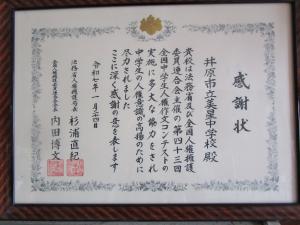 感謝状
井原市立美星中学校 殿
貴校は法務省及び全国人権擁護
委員連合会主催の第四十三回
全国中学生人権作文コンテストの
実施に多大な協力をされ
中学生の人権意識の高揚のために
尽力されました
ここに深く感謝の意を表します
令和七年一月二十四日
法務省人権擁護局長
杉浦直紀
全国人権擁護委員連合会長
内田博文